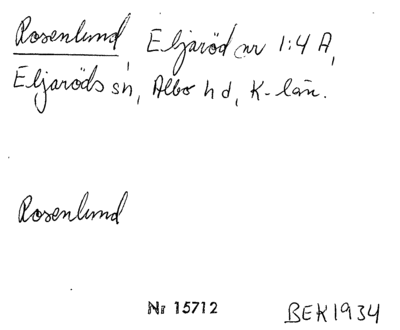 Rosenlund, Eljaröd nr 1:4 A,
Eljaröds sn, Albo hd, K-län.
Rosenlund
Nr 15712
BEK1934